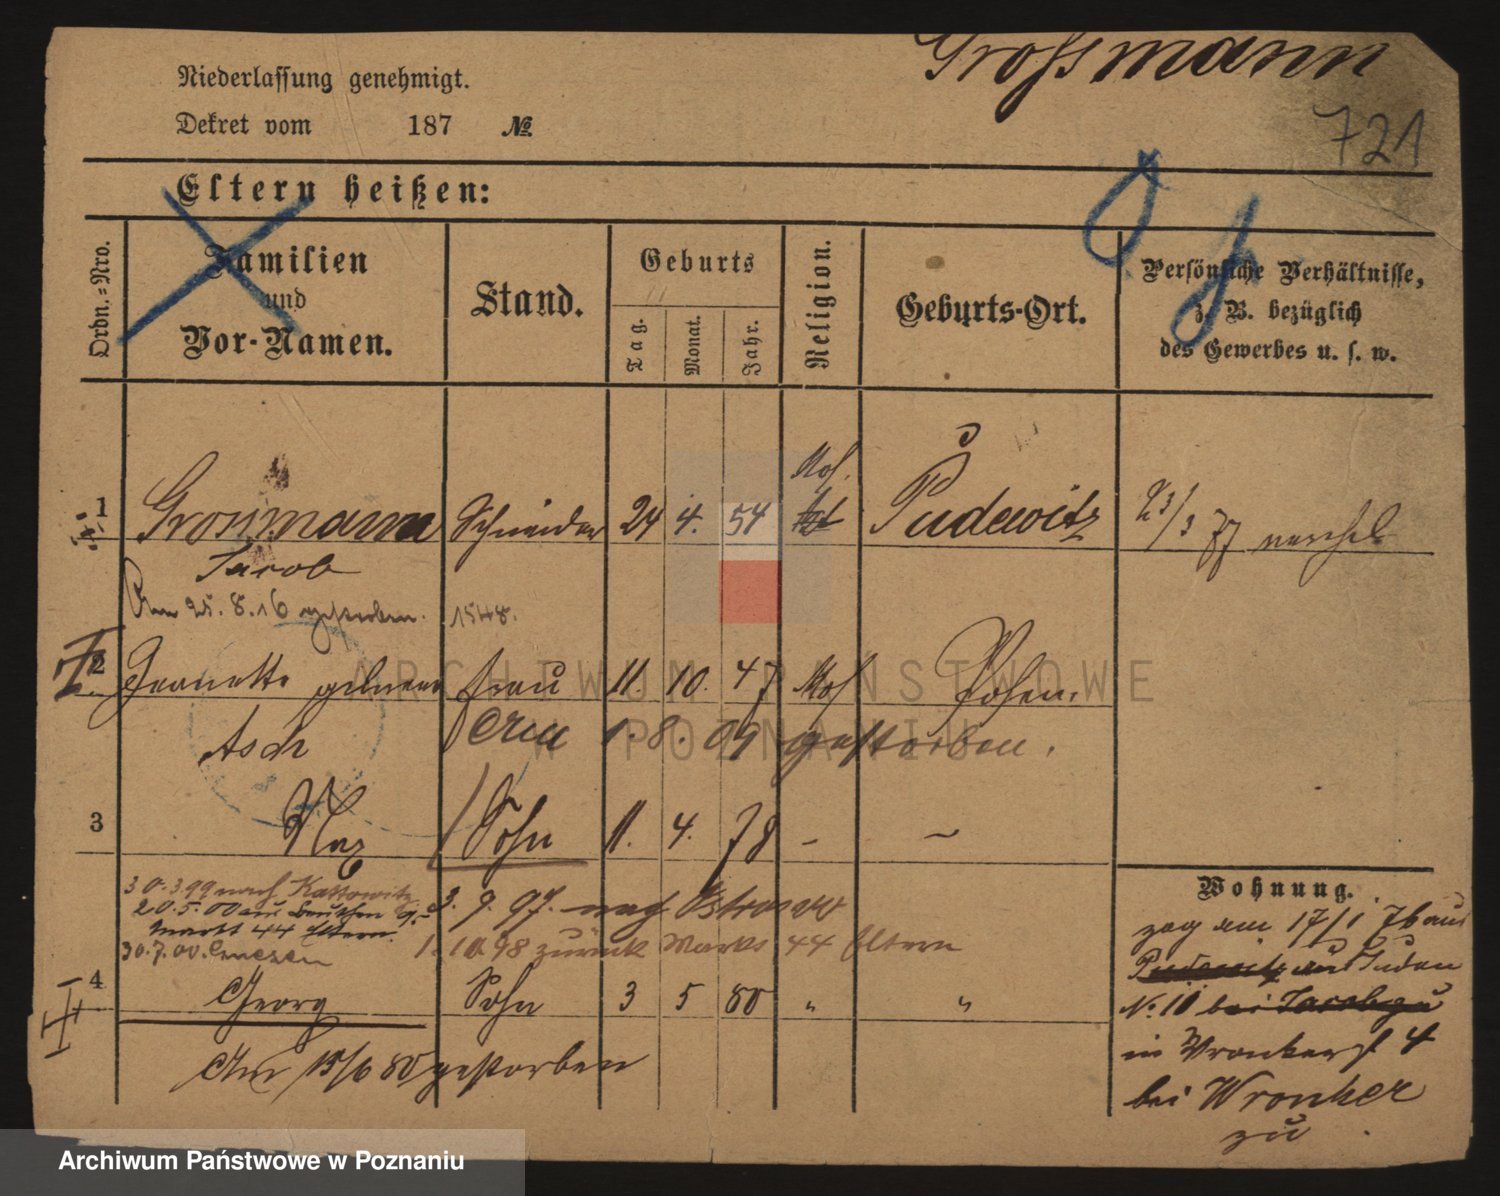 Grossmann
Niederlassung genehmigt.
Dekret vom 187 No.
721
Eltern heißen:
Ordn.-Nro.
Familien und Vor-Namen.
Stand.
Geburts
Tag.
Monat.
Jahr.
Religion.
Geburts-Ort.
Persönliche Verhältnisse,
z. B. bezüglich
des Gewerbes u. s. w.
Mos.
1 Grossmann Schneider 24 4. 54 Pudewitz 23/3 77
Jacob
Am 25. 8. 16 gestorben. 1548.
2 Jeanette geborene Frau 11. 10. 47 Mos Posen.
Asch am 1. 8. 09 gestorben.
3 Max Sohn 11. 4. 78 - -
30.3 99 nach Kattowitz
3. 9. 97. nach Ostrowo
20.5.00 aus Beuthen
Markt 44 Eltern
1. 10. 98 zurück Markt 44 Eltern
30.7.00. Gnesen
4 Georg Sohn 3 5 80 " "
Am 15/6 80 gestorben
Wohnung.
zog am 17/1 76 aus
Pudewitz
No. 10 bei Jacob zu
in Wronkerst 4
bei Wronker
zu
ARCHIWUM PAŃSTWOWE
W POZNANIU
Archiwum Państwowe w Poznaniu